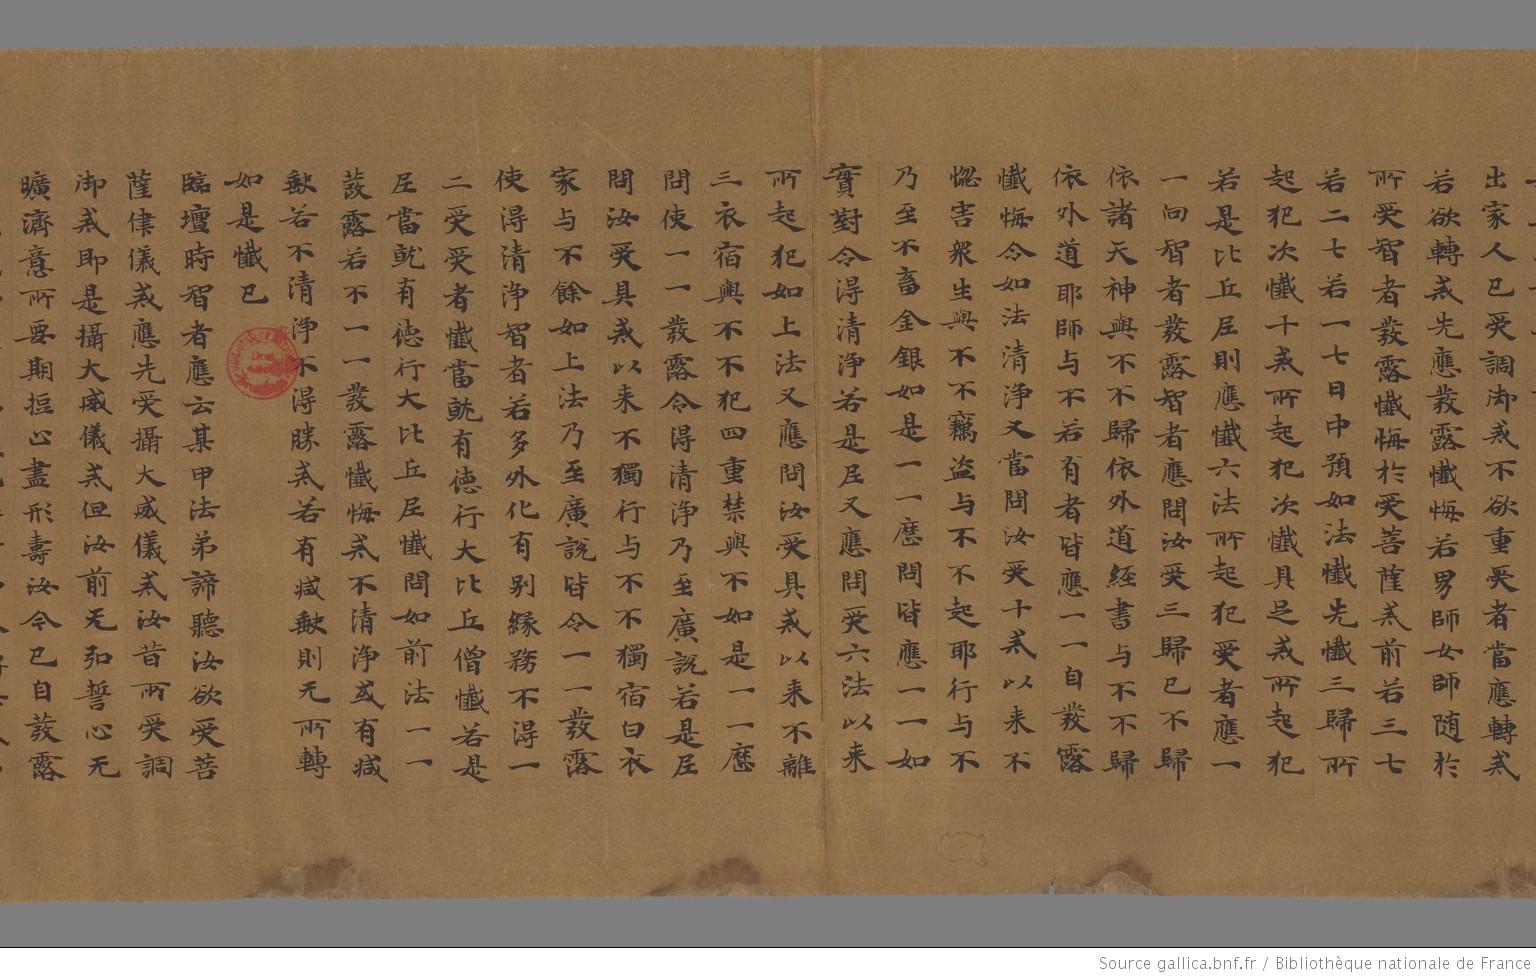 出家人已受調御戒不欲重受者當應轉戒
若欲轉戒先應發露懺悔若男師女師随於
所受智者發露懺悔於受菩薩戒前若三七
若二七若一七日中預如法懺先懺三歸所
起犯次懺十戒所起犯次懺具足戒所起犯
若是比丘尼則應懺六法所起犯受者應一
一向智者發露智者應問汝受三歸已不歸
依諸天神與不不歸依外道經書与不不歸
依外道耶師与不若有者皆應一一自發露
懺悔令如法清淨又當問汝受十戒以来不
惚害衆生與不不竊盜与不不起耶行与不
乃至不畜金銀如是一一歷問皆應一一如
實對令得清淨若是尼又應問受六法以来
所起犯如上法又應問汝受具戒以来不離
三衣宿與不不犯四重禁與不如是一一歷
問使一一發露令得清淨乃至廣說若是尼
問汝受具戒以来不獨行与不不獨宿白衣
家与不餘如上法乃至廣說皆令一一發露
使得清淨智者若多外化有別緣務不得一
二受受者懺當就有德行大比丘僧懺若是
尼當就有德行大比丘尼懺問如前法一一
發露若不一一發露懺悔戒不清淨或有減
缺若不清淨不得勝戒若有減缺則无所轉
如是懺已
臨壇時智者應云某甲法弟諦聽汝欲受菩
薩律儀戒應先受攝大威儀戒汝昔所受調
御戒即是攝大威儀戒但汝前无弘誓心无
曠濟意所要期拒心盡形壽汝令已自發露
Source gallica.bnf.fr / Bibliothèque nationale de France